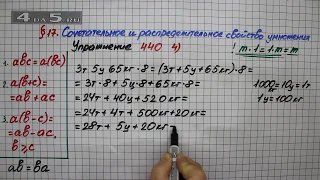 4DA5.RU
§17. Сочетательное и распределительное свойство умножения
Упражнение 440 4)
! m·1=1·m=m
1. abc=a(bc)
2. a(b+c)=
=ab+ac
3. a(b-c)=
=ab-ac,
b>c
ab=ba
3т 5ц 65кг·8=(3т+5ц+65кг)·8=
=3т·8+5ц·8+65кг·8=
=24т+40ц+520кг=
=24т+4т+500кг+20кг=
=28т+5ц+20кг
1000=10ц=1т
1ц=100кг